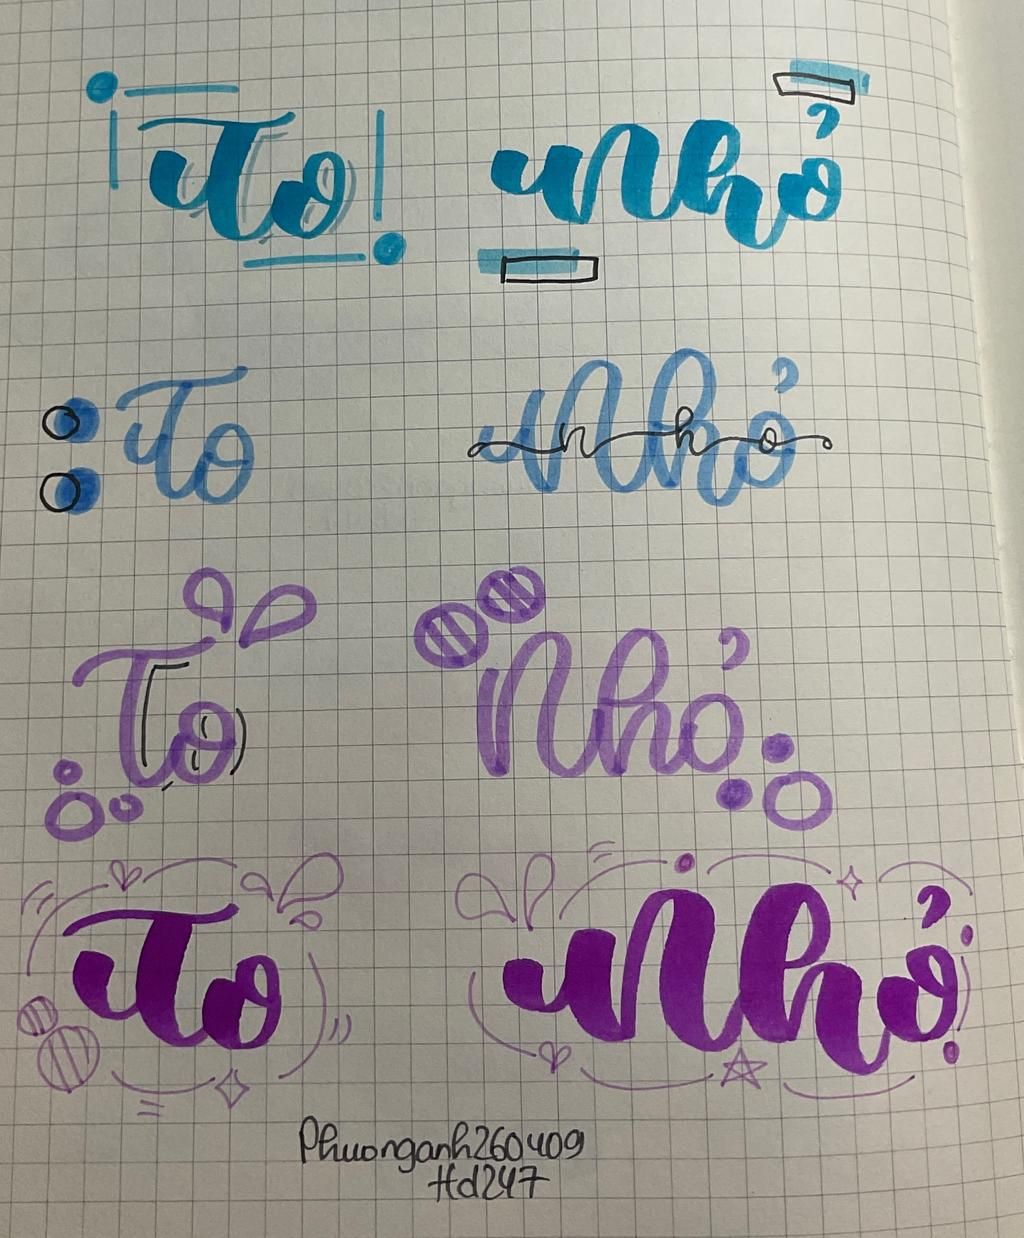 To Nhỏ
To Nhỏ
n h o
To Nhỏ
To Nhỏ
Phuonganh260409
Hd247